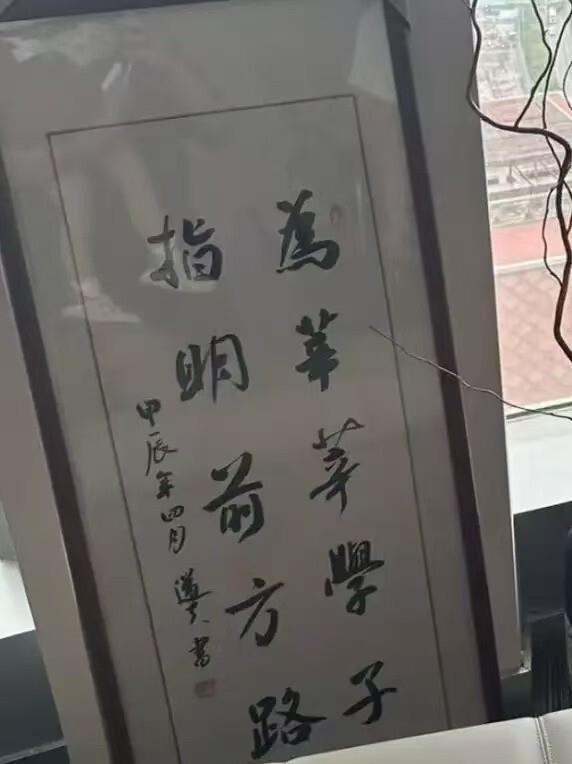 為莘莘學子
指明前方路
甲辰年四月 書